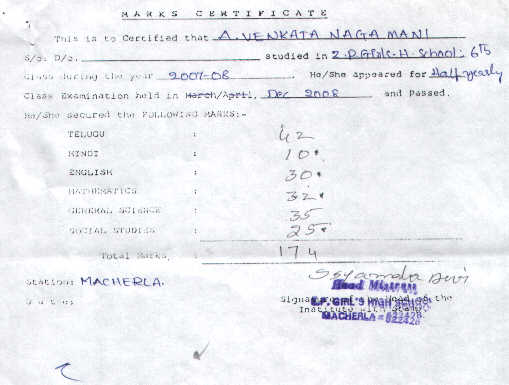 MARKS CERTIFICATE
This is to Certified that A. VENKATA NAGA MANI
S/o. D/o. studied in Z.P.Girls-H. School: 6th
Class during the year 2007-08. He/She appeared for Half yearly
Class Examination held in March/April, Dec 2008 and Passed.
He/She secured the FOLLOWING MARKS:-
TELUGU : 42
HINDI : 10
ENGLISH : 30
MATHEMATICS : 32
GENERAL SCIENCE : 35
SOCIAL STUDIES : 25
Total Marks. : 174
Station: MACHERLA.
Date:
Head Mistress
Signature of the Head of the
Institute with Stamp
GIRL'S HIGH SCHOOL
MACHERLA = 522426